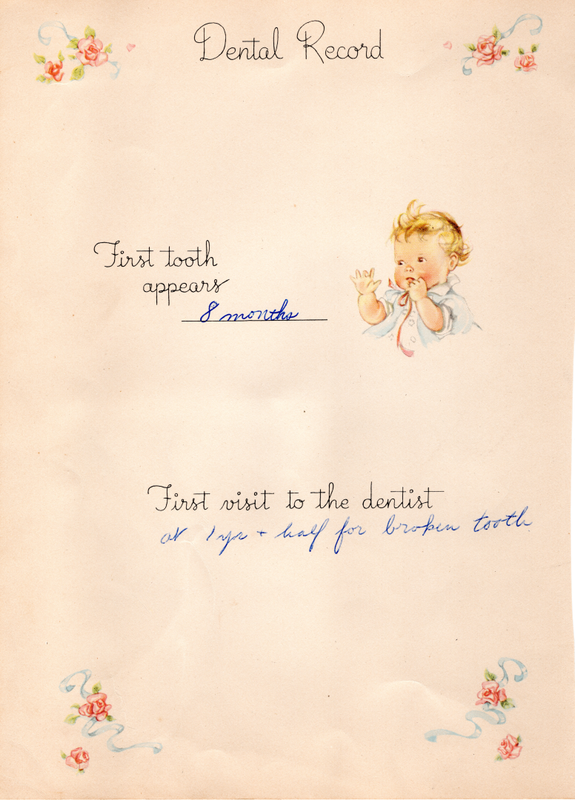 Dental Record
First tooth
appears
8 months
First visit to the dentist
at 1 yr + half for broken tooth